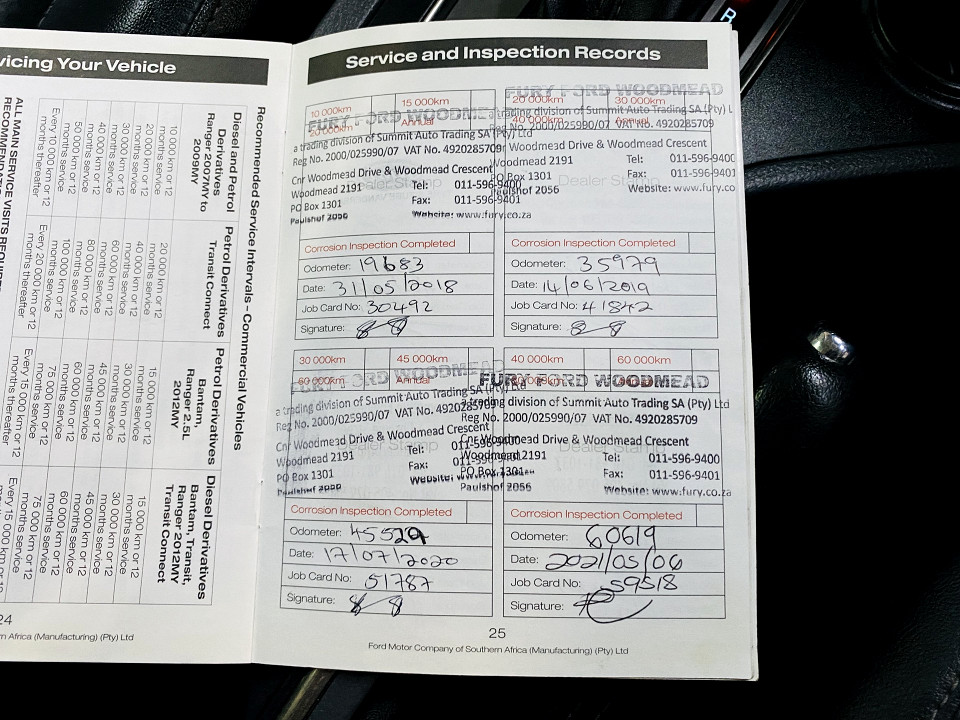 vicing Your Vehicle
Recommended Service Intervals – Commercial Vehicles
Diesel and Petrol
Derivatives
Ranger 2007MY to
2009MY
10 000 km or 12
months service
20 000 km or 12
months service
30 000 km or 12
months service
40 000 km or 12
months service
50 000 km or 12
months service
Every 10 000 km or 12
months thereafter
Petrol Derivatives
Transit Connect
20 000 km or 12
months service
40 000 km or 12
months service
60 000 km or 12
months service
80 000 km or 12
months service
100 000 km or 12
months service
Every 20 000 km or 12
months thereafter
Petrol Derivatives
Bantam,
Ranger 2.5L
2012MY
15 000 km or 12
months service
30 000 km or 12
months service
45 000 km or 12
months service
60 000 km or 12
months service
75 000 km or 12
months service
Every 15 000 km or 12
months thereafter
Diesel Derivatives
Bantam, Transit,
Ranger 2012MY
Transit Connect
15 000 km or 12
months service
30 000 km or 12
months service
45 000 km or 12
months service
60 000 km or 12
months service
75 000 km or 12
months service
Every 15 000 km or 12
ALL MAIN SERVICE VISITS
24
rn Africa (Manufacturing) (Pty) Ltd
Service and Inspection Records
10 000km
15 000km
Annual
FURY FORD WOODMEAD
a trading division of Summit Auto Trading SA (Pty) Ltd
Reg No. 2000/025990/07 VAT No. 4920285709
Cnr Woodmead Drive & Woodmead Crescent
Woodmead 2191
PO Box 1301
Paulshof 2056
Tel: 011-596-9400
Fax: 011-596-9401
Website: www.fury.co.za
Dealer Stamp
Corrosion Inspection Completed
Odometer: 19683
Date: 31/05/2018
Job Card No: 30492
Signature:
20 000km
30 000km
40 000km
Annual
FURY FORD WOODMEAD
trading division of Summit Auto Trading SA (Pty) L
Reg No. 2000/025990/07 VAT No. 4920285709
Woodmead Drive & Woodmead Crescent
Woodmead 2191
PO Box 1301
Paulshof 2056
Tel: 011-596-9400
Fax: 011-596-9401
Website: www.fury.co
Dealer Stamp
Corrosion Inspection Completed
Odometer: 35979
Date: 14/06/2019
Job Card No: 41842
Signature:
30 000km
45 000km
60 000km
Annual
FURY FORD WOODMEAD
a trading division of Summit Auto Trading SA (Pty) Ltd
Reg No. 2000/025990/07 VAT No. 4920285709
Cnr Woodmead Drive & Woodmead Crescent
Woodmead 2191
PO Box 1301
Tel: 011-596-9400
Fax: 011-596-9401
Dealer Stamp
Corrosion Inspection Completed
Odometer: 45529
Date: 17/07/2020
Job Card No: 51787
Signature:
40 000km
60 000km
FURY FORD WOODMEAD
a trading division of Summit Auto Trading SA (Pty) Ltd
Reg No. 2000/025990/07 VAT No. 4920285709
Cnr Woodmead Drive & Woodmead Crescent
Woodmead 2191
PO Box 1301
Paulshof 2056
Tel: 011-596-9400
Fax: 011-596-9401
Website: www.fury.co.za
Dealer Stamp
Corrosion Inspection Completed
Odometer: 60619
Date: 2021/05/06
Job Card No: 59518
Signature:
25
Ford Motor Company of Southern Africa (Manufacturing) (Pty) Ltd
R